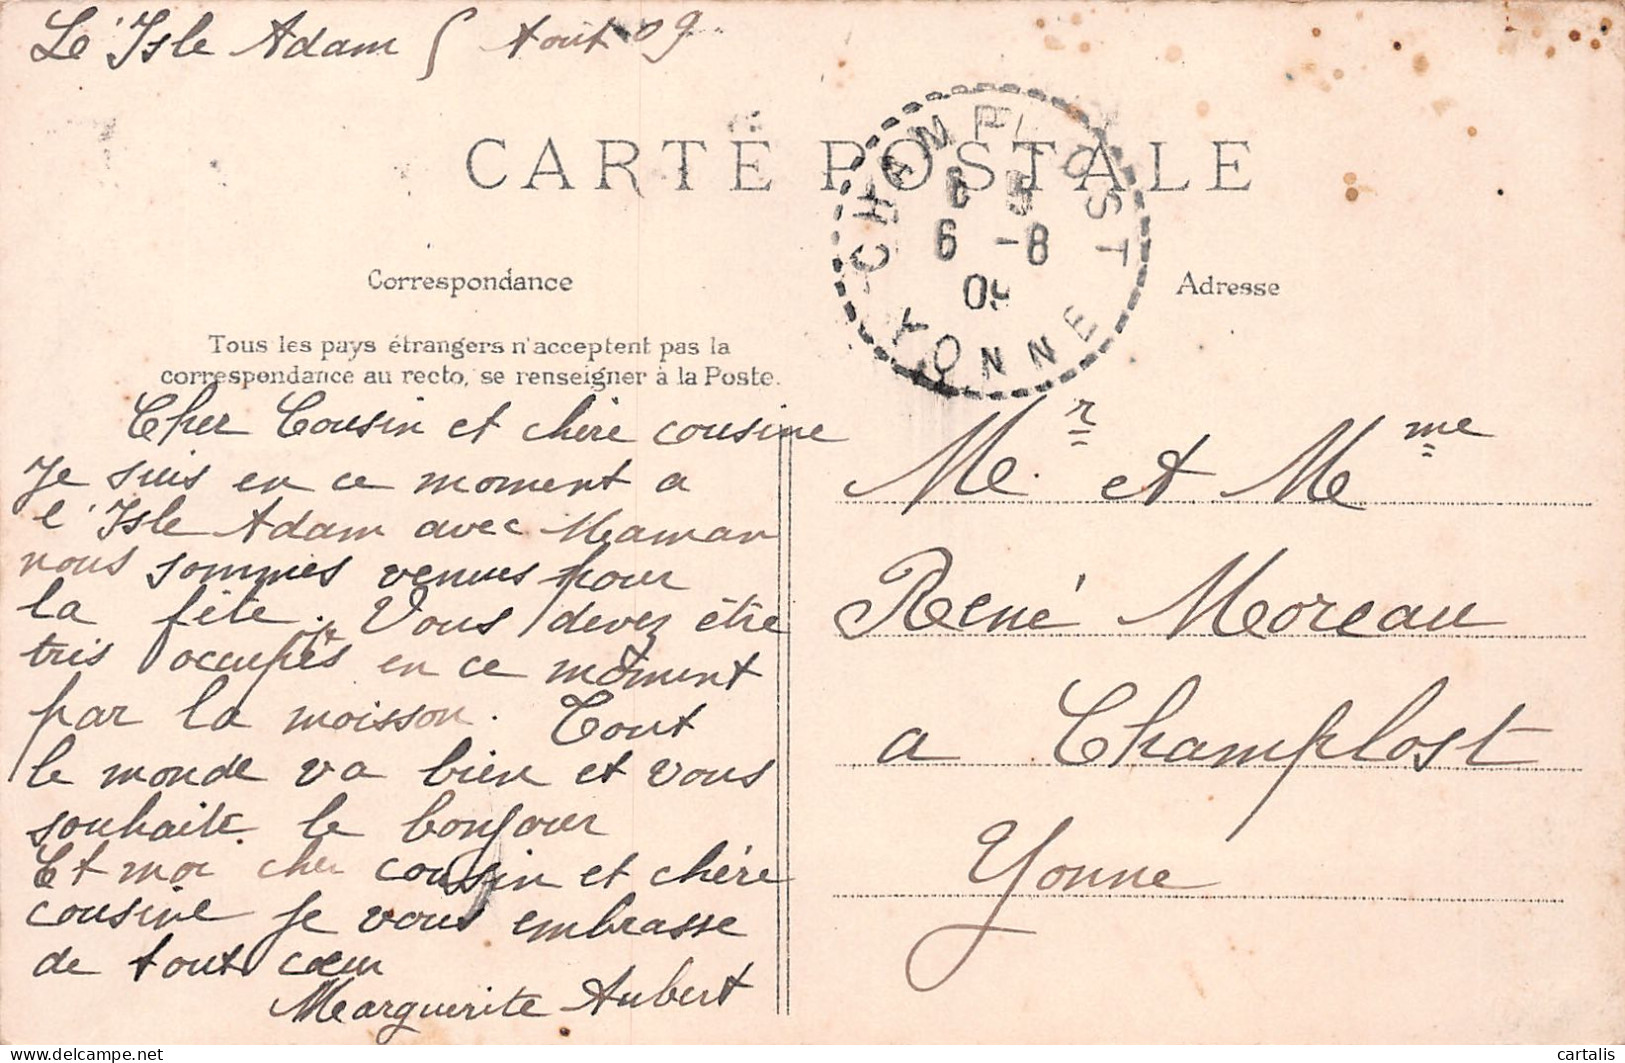 Le 'Isle Adam 5 Aout 09
CARTE POSTALE
CHAMPLOST
6 -8
09
YONNE
Correspondance
Adresse
Tous les pays étrangers n'acceptent pas la
correspondance au recto, se renseigner à la Poste.
Cher Cousin et chère cousine
Je suis en ce moment a
l'Isle Adam avec Maman
nous sommes venues pour
la fête. Vous devez être
très occupés en ce moment
par la moisson. Tout
le monde va bien et vous
souhaite le bonjour
Et moi cher cousin et chère
cousine je vous embrasse
de tout cœur
Marguerite Aubert
Mr et Mme
René Moreau
a Champlost
Yonne
delcampe.net
cartalis